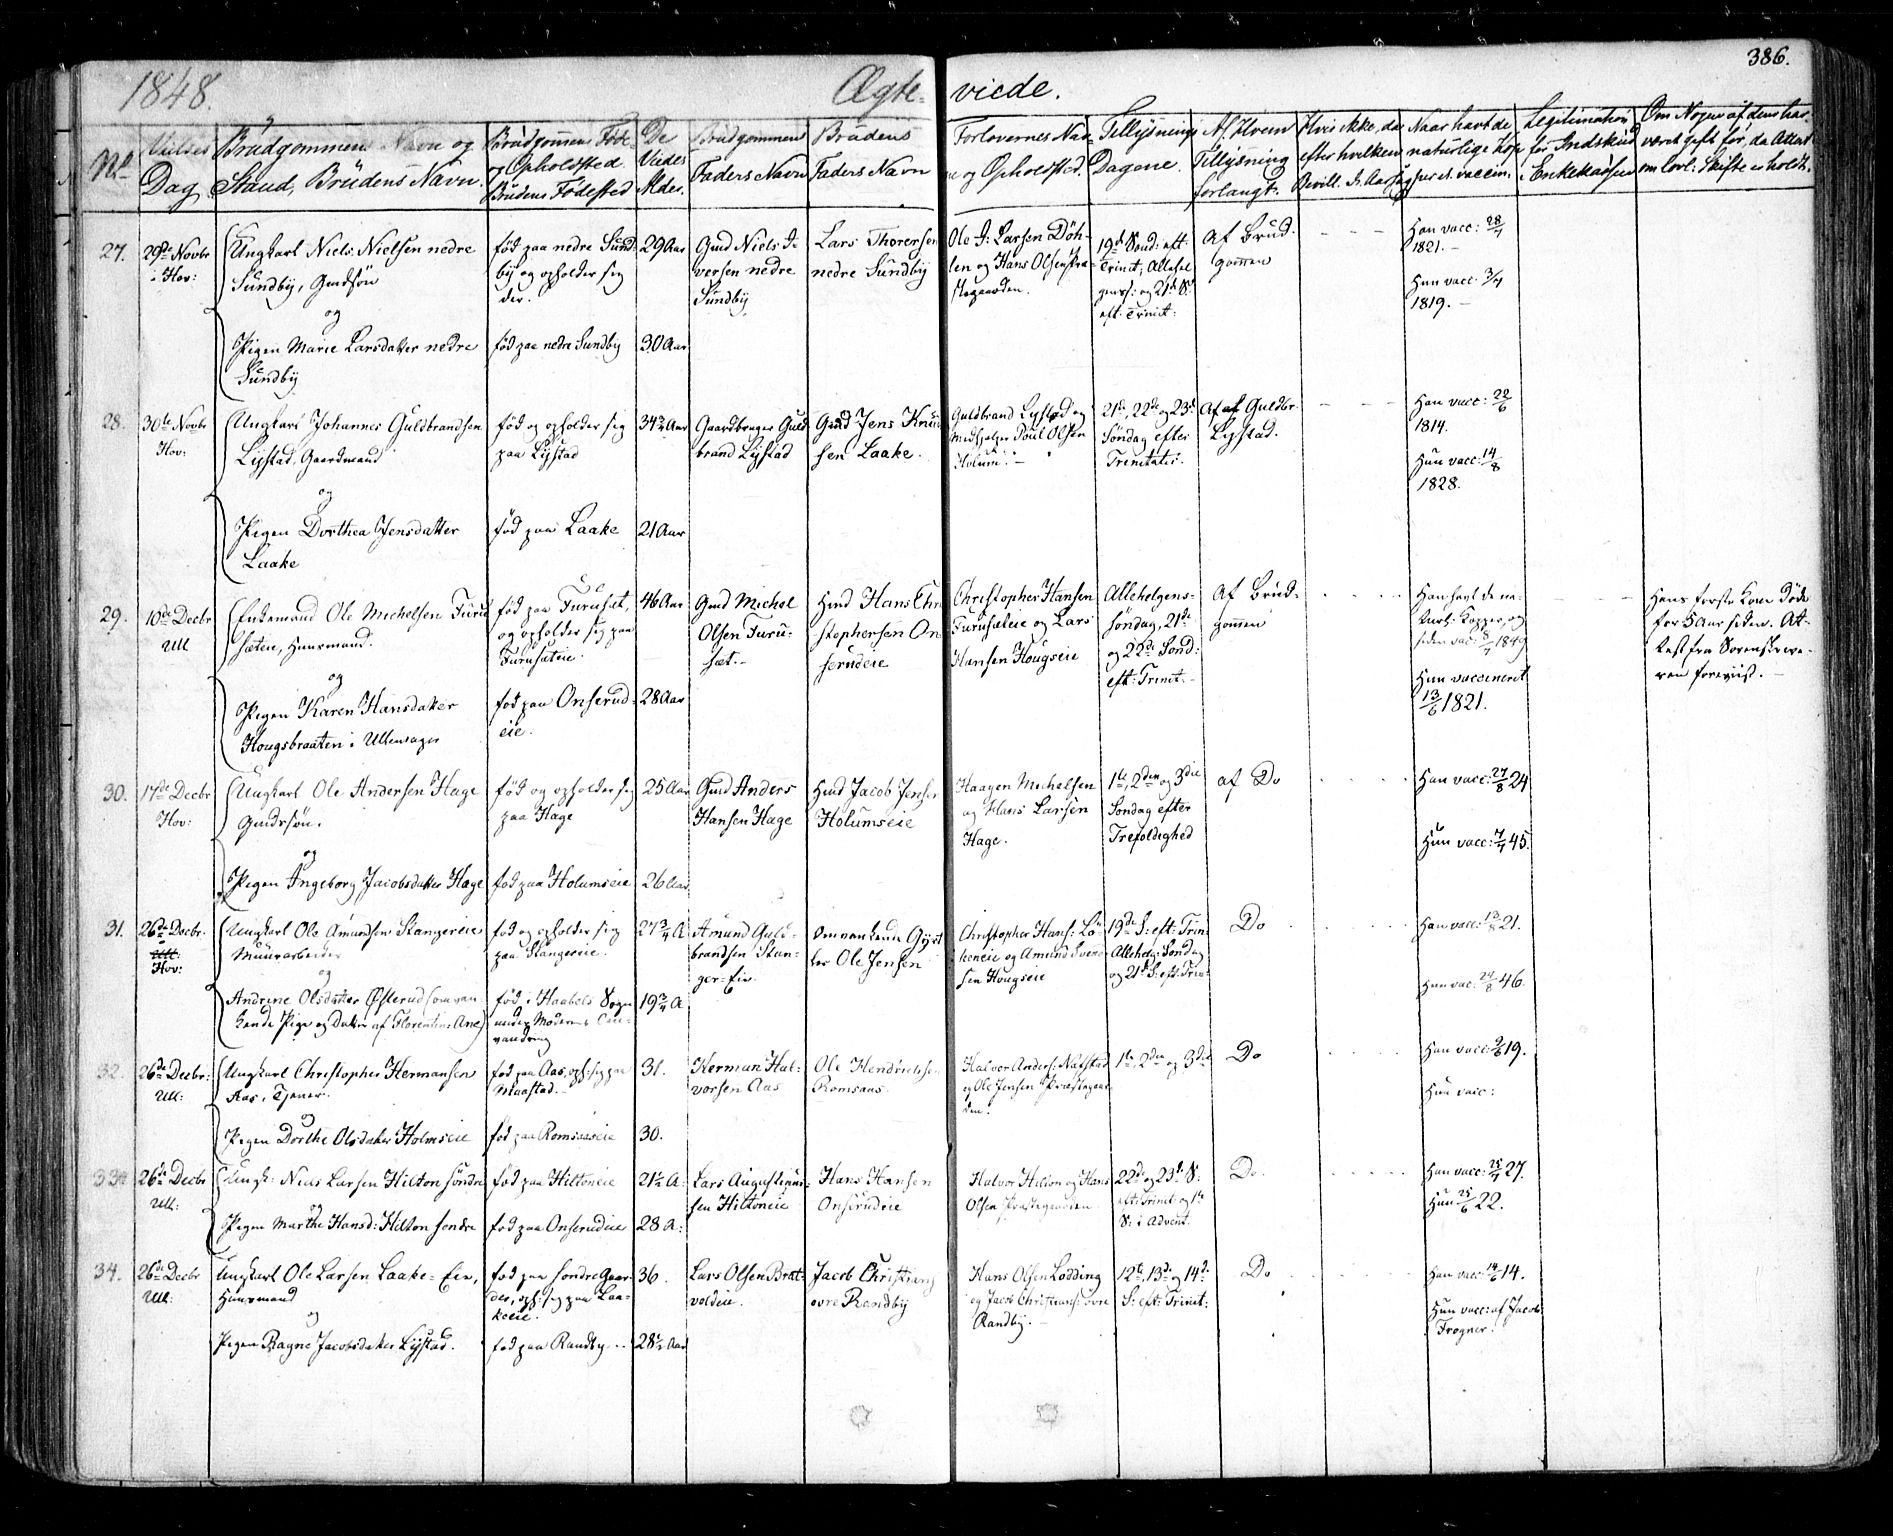 1848. Ægte- viede. 386.
No
Vielses Dag
Brudgommens Navn og Stand, Brudens Navn.
Brudgommens Føde- og Opholdsted Brudens Fødested
De Viedes Alder.
Brudgommens Faders Navn
Brudens Faders Navn
Forlovernes Nav- ne og Opholdsted.
Tillysnings Dagene.
Af Hvem Tillysning forlangt.
Hvis ikke, da efter hvilken Bevill.
Naar havt de naturlige Kop- per el. vaccin:
Legitimation for Indskud i Enkekassen
Om Nogen af dem har været gift før, da Attest om lovl: Skifte er holdt.
27.
29de Novbr
Hov:
Ungkarl Niels Nielsen nedre
Sundby, Gmdsøn
og
Pigen Marie Larsdatter nedre
Sundby
fød paa nedre Sund
by og opholder sig
der.
fød paa nedre Sundby
29 Aar
30 Aar
Gmd Niels I-
versen nedre
Sundby
Lars Thoresen
nedre Sundby
Ole J: Larsen Döh-
len og Hans Olsen Præ-
stegaarden.
19de Sönd: eft:
Trinit; Allehel
gens: og 21de S:
eft: Trinit:
Af Brud-
gommen
Han vacc: 28/7
1821.
Hun vacc: 3/7
1819.
28.
30te Novbr
Hov:
Ungkarl Johannes Guldbrandsen
Lystad, Gaardmand
og
Pigen Dorthea Jensdatter
Laake
fød og opholder sig
paa Lystad
fød paa Laake
34 1/2 Aar
21 Aar
Gaardbruger Guld
brand Lystad
Gmd Jens Knud
sen Laake.
Guldbrand Lystad og
Medhjelper Poul Olsen
Holum.
21de, 22de og 23de
Söndag efter
Trinitatis.
Af Guldbr.
Lystad.
Han vacc: 22/6
1814.
Hun vacc: 14/8
1828.
29.
10de Decbr
Ull
Enkemand Ole Michelsen Furu
sæteie, Huusmand.
og
Pigen Karen Hansdatter
Hougsbraaten i Ullensager
fød paa Furusæt,
og opholder sig paa
Furusæteie.
fød paa Onserud-
eie.
46 Aar
28 Aar
Gmd Michel
Olsen Furu-
sæt.
Hmd Hans Chri
stophersen On
serudeie
Christopher Hansen
Furusæteie og Lars
Hansen Hougseie
Allehelgens-
söndag, 21de
og 22de Sönd:
eft: Trinit:
Af Brud-
gommen
Han havt de na-
turl: Kopper, og
siden vac: 8/7 1849
Hun vaccineret
13/6 1821.
Hans første Kone Døde
for 5 Aar siden. At-
test fra Sorenskrive-
ren foreviist.
30.
17de Decbr
Hov:
Ungkarl Ole Andersen Hage
Gmdssøn.
og
Pigen Ingeborg Jacobsdatter Hage
fød og opholder sig
paa Hage
fød paa Holumseie
25 Aar
26 Aar
Gmd Anders
Hansen Hage
Hmd Jacob Jensen
Holumseie
Haagen Michelsen
og Hans Larsen
Hage.
1te, 2den og 3die
Söndag efter
Trefoldighed
af Do
Han vacc: 27/8 24
Hun vacc: 7/7 45.
31.
26de Decbr.
Ull:
Hov:
Ungkarl Ole Amundsen Stangereie
Muurarbeider
og
Andrine Olsdatter Østerud, omvan-
kende Pige og Datter af Florentine Ane
fød og opholder sig
paa Stangereie.
fød i Haabøls Sogn
under Moderens Om-
vandring
27 3/4 A
19 3/4 A
Amund Guld-
brandsen Stan-
ger-Eie
Omvankende Gjört
ler Ole Jensen
Christopher Hans: Lö
keneie og Amund Svend
sen Hougseie
19de S: eft: Trin:
Allehelg: Söndag
og 21de S: eft: Trin:
Do
Han vacc: 21.
Hun vac: 24/8 46.
32.
26de Decbr:
Ull:
Ungkarl Christopher Hermansen
Aas, Tjener.
og
Pigen Dorthe Olsdatter Holmseie
fød paa Aas, oph: sig paa
Maastad.
fød paa Romsaaseie
31.
30.
Herman Hal-
vorsen Aas
Ole Hendrichsen
Romsaas.
Halvor Anders: Nafstad
og Ole Jensen Præstegaar
den.
1te, 2den og 3die
Do
Han vacc: 19.
Hun vacc:
33.
26de Decbr
Ull:
Ungk: Niels Larsen Hilton søndre
og
Pigen Marthe Hansd: Hilton søndre
fød paa Hiltoneie
fød paa Onserudeie
21 1/2 A:
28 A:
Lars Augustinus-
sen Hiltoneie
Hans Hansen
Onserudeie
Halvor Hilton og Hans
Olsen Præstegaarden
22de og 23de S:
eft: Trinit og 1te
S: i Advent.
Do.
Han vacc: 27.
Hun 25/6 22.
34.
26de Decbr
Ull:
Ungkarl Ole Larsen Laake-Eie,
Huusmand
og
Pigen Ragne Jacobsdatter Lystad.
fød paa søndre Gaar
der, oph: sig paa Laa-
keeie.
fød paa Randby
36.
28 1/2 Aar
Lars Olsen Brat-
voldeie.
Jacob Christians
øvre Randby
Hans Olsen Lödding
og Jacob Christians: øvre
Randby.
12te, 13de og 14de
S: eft: Trinit:
Do
Han vacc: 14/6 14.
Hun vacc: af Jacob
Frogner.